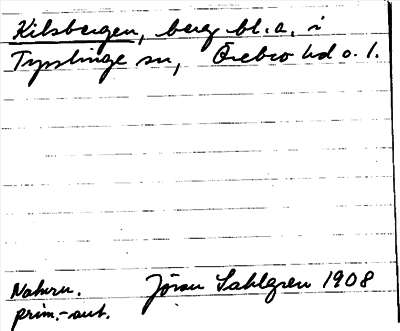 Kilsbergen, berg bl.a. i
Tysslinge sn, Örebro hd o. l.
Naturn. Jöran Sahlgren 1908
prim.-ant.